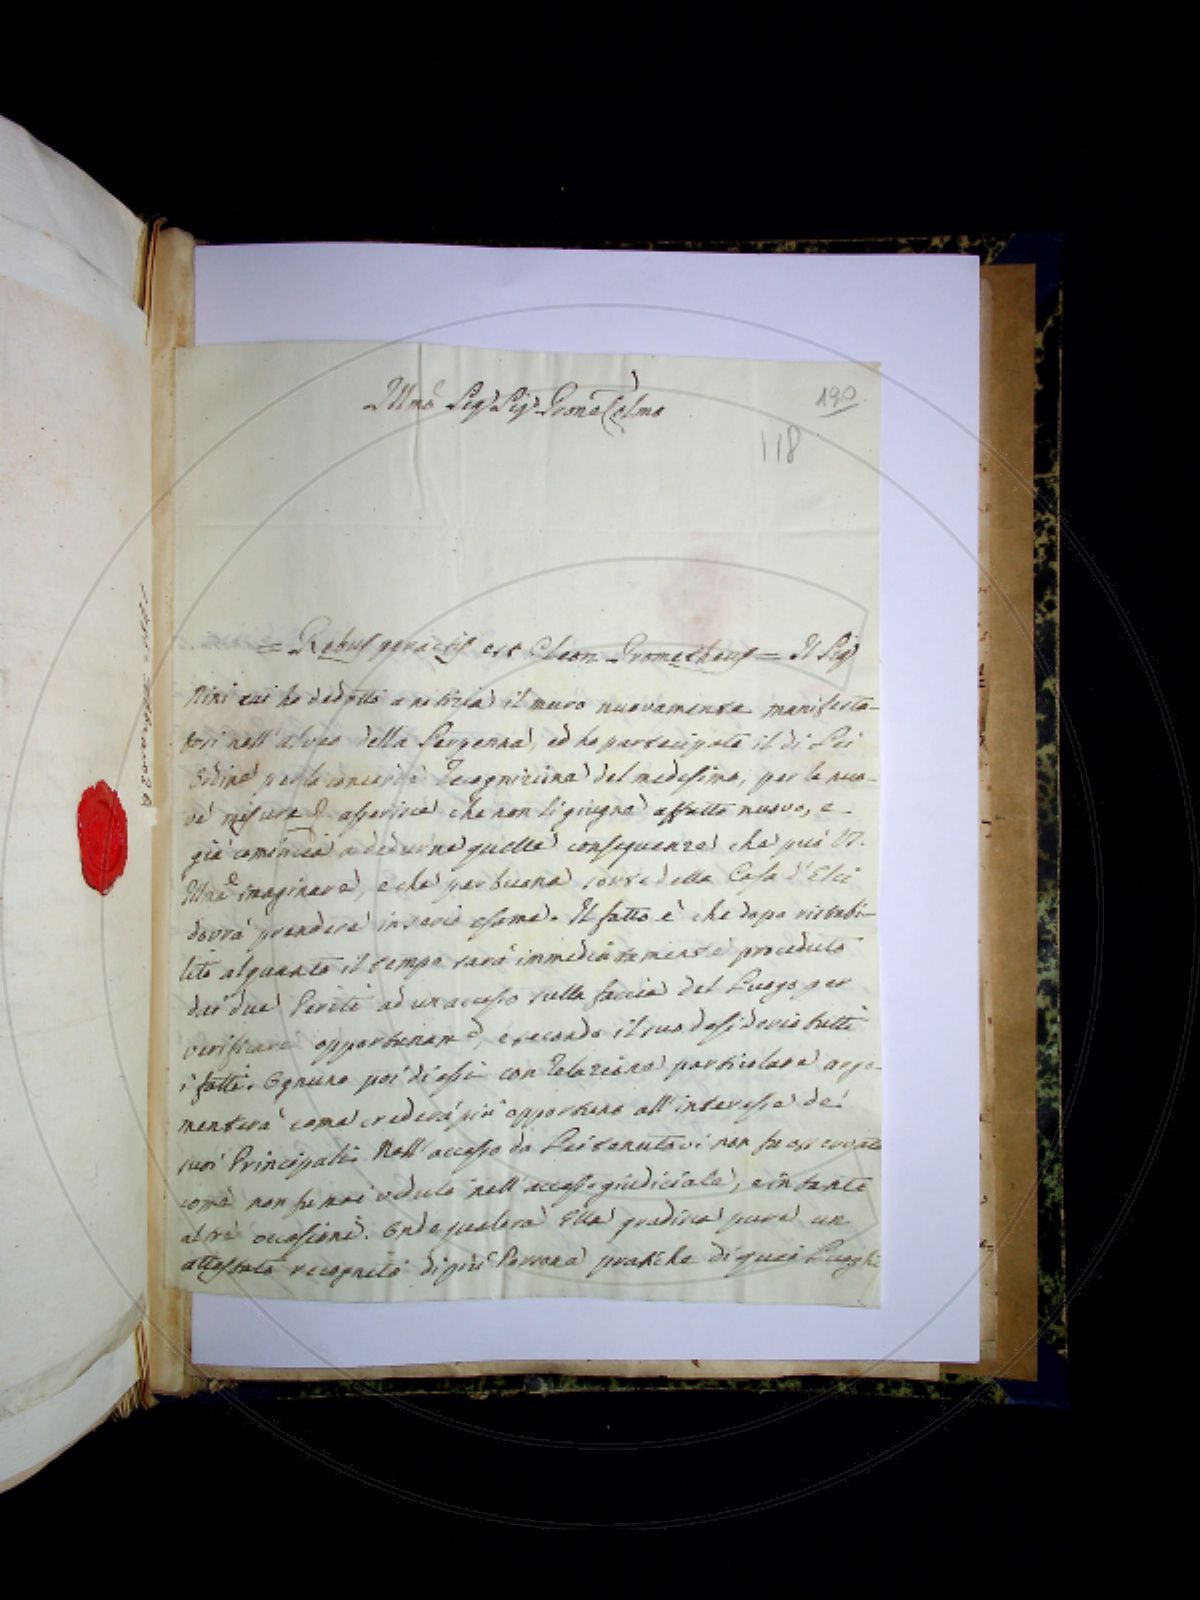 Illmo Sigr Sigr Prone Colmo
190
118
= Rebus peractis est Cleon Prometheus = Il Sigr
Nini qui ha dedotto a notizia il muro nuovamente manifesta-
tosi nell'alveo della Serpenna, ed ha partecipato il di Lei
Ordine per la concorde recognizione del medesimo, per la nuo-
va misura asserisce che non li giugne affatto nuovo, e
già comincia a dedurne quelle conseguenze che può V.
Illma imaginare, e che per buona sorte della Casa d'Elci
dovrà prendere in serio esame. Il fatto è che dopo ristabi-
lito alquanto il tempo sarà immediatamente proceduto
dai due Periti ad un accesso sulla faccia del Luogo per
verificare opportunamte, e secondo il suo desiderio tutti
i fatti. Ognuno poi di essi con relazione particolare argo-
menterà come crederà più opportuno all'interesse de'
suoi Principali. Nell'accesso da Lei tenutovi non fu osservato
come non fu mai veduto nell'accesso giudiciale, e in tante
altre occasioni. Onde qualora Ella gradisca pure un
attestato recognito di più Persone pratiche di quei Luoghi